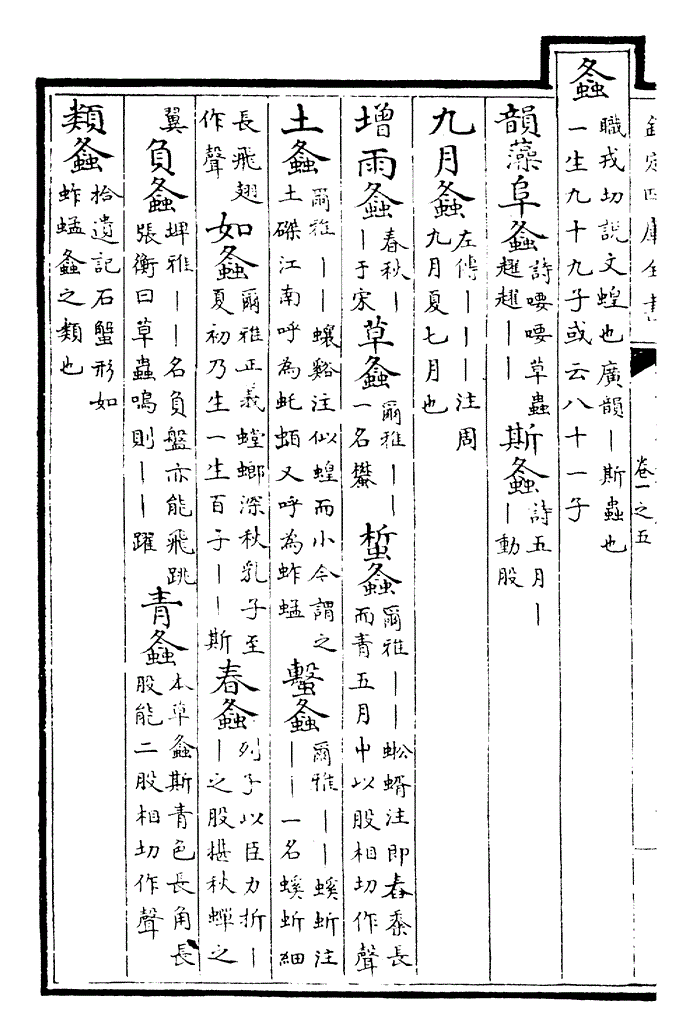 欽定四庫全書
卷一之五
螽職戎切説文蝗也廣韻｜斯蟲也
一生九十九子或云八十一子
韻藻阜螽詩喓喓草蟲
趯趯｜｜斯螽詩五月｜
｜動股
九月螽左傳｜｜｜注周
九月夏七月也
增雨螽春秋｜
｜于宋草螽爾雅｜｜
一名蠜蜤螽爾雅｜｜蜙蝑注即舂黍長
而青五月中以股相切作聲
土螽爾雅｜｜蠰谿注似蝗而小今謂之
土磔江南呼為虴蛨又呼為蚱蜢蟿螽爾雅｜｜螇蚸注
｜｜一名螇蚸細
長飛翅
作聲如螽爾雅正義螳螂深秋乳子至
夏初乃生一生百子｜｜斯春螽列子以臣力折｜
｜之股堪秋蟬之
翼負螽埤雅｜｜名負盤亦能飛跳
張衡曰草蟲鳴則｜｜躍青螽本草螽斯青色長角長
股能二股相切作聲
類螽拾遺記石蟹形如
蚱蜢螽之類也